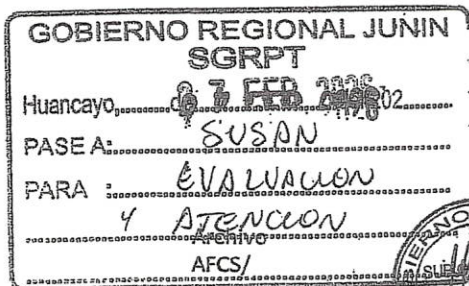 GOBIERNO REGIONAL JUNIN
SGRPT
Huancayo, FEB 02
PASE A: SUSAN
PARA : EVALUACION
Y ATENCION
Archivo
AFCS/